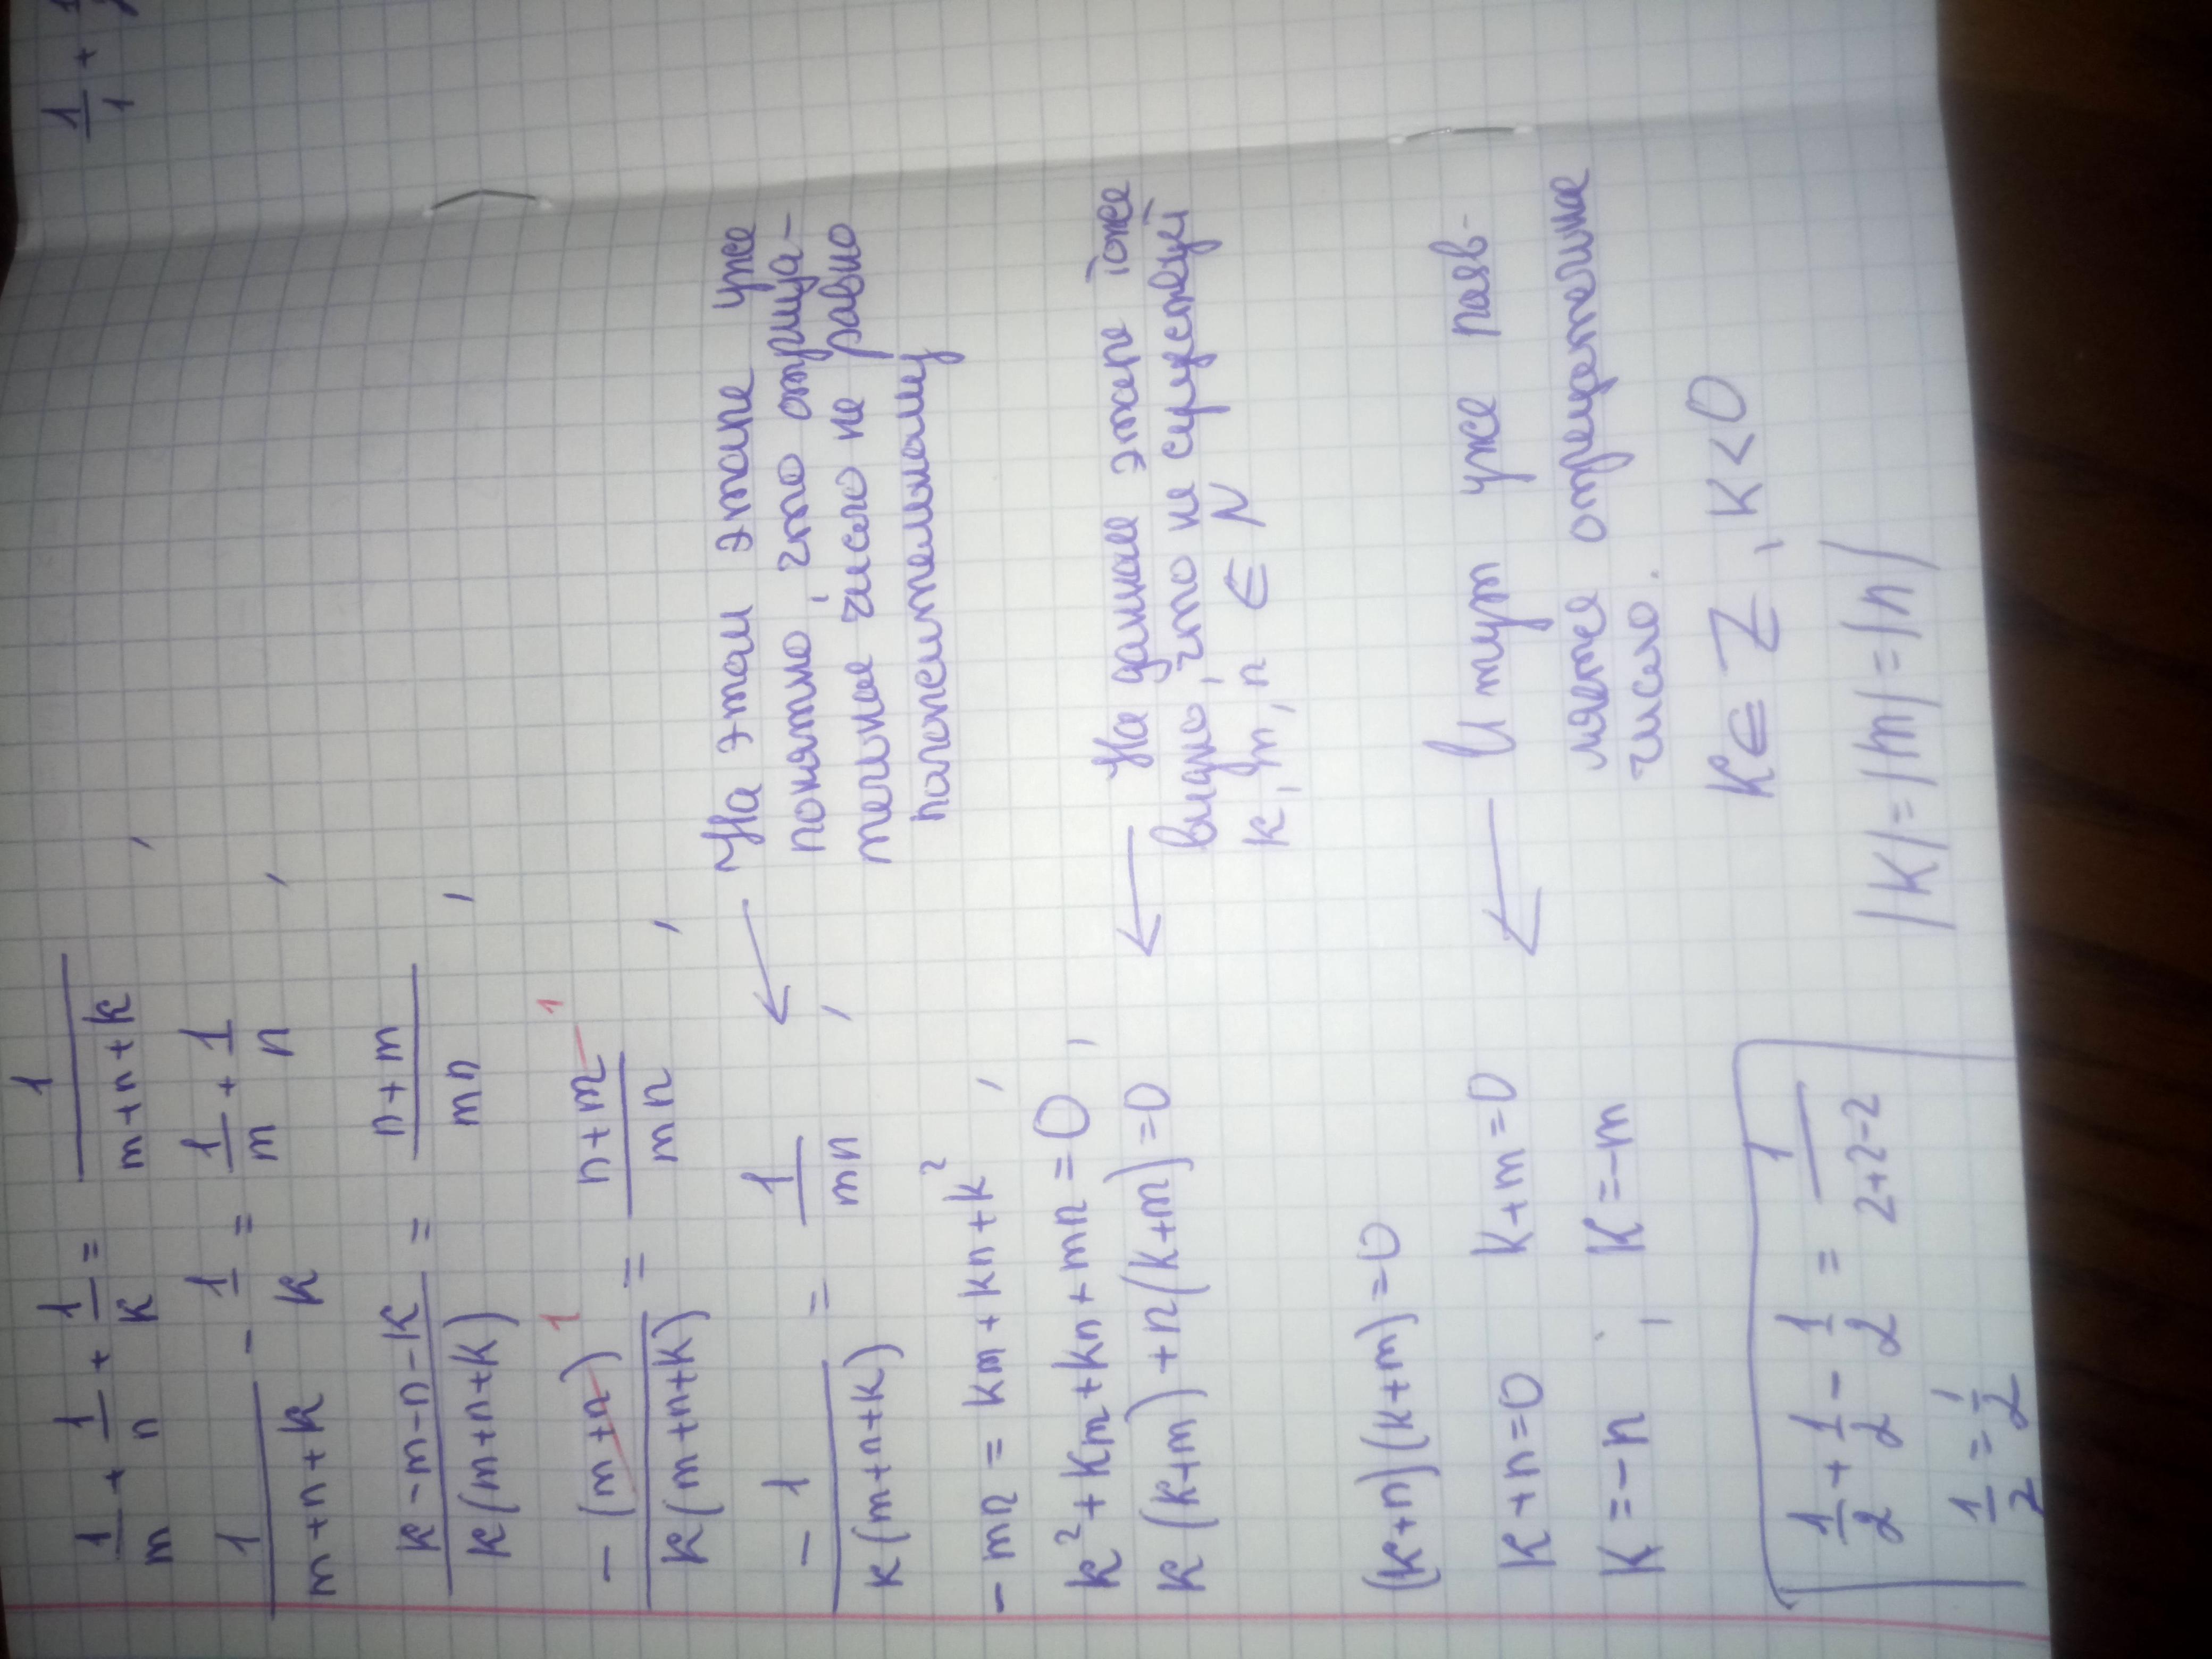 1/1 + 1
1/m + 1/n + 1/k = 1/(m+n+k) ,
1/(m+n+k) - 1/k = 1/m + 1/n ,
(k-m-n-k)/(k(m+n+k)) = (n+m)/(mn) ,
-(m+n) 1/(k(m+n+k)) = (n+m) 1/(mn) ,
-1/(k(m+n+k)) = 1/(mn) ,
← На этом этапе уже
понятно, что отрица-
тельное число не равно
положительному
-mn = km + kn + k² ,
k² + km + kn + mn = 0 ,
k(k+m) + n(k+m) = 0
← На данном этапе тоже
видно, что не существует
k, m, n ∈ N
(k+n)(k+m) = 0
k+n=0 k+m=0
k=-n ; k=-m
← И тут уже появ-
ляется отрецательное
число.
k ∈ Z, k < 0
|k| = |m| = |n|
1/2 + 1/2 - 1/2 = 1/(2+2-2)
1/2 = 1/2